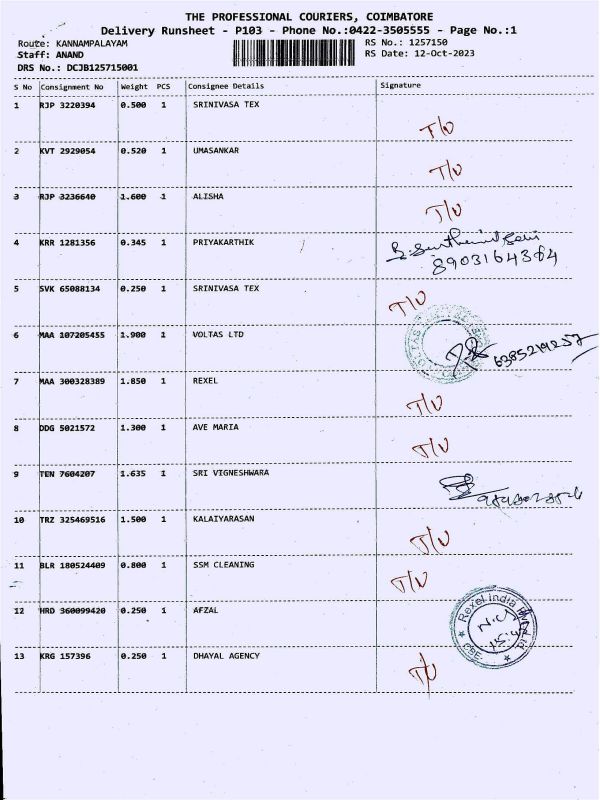 THE PROFESSIONAL COURIERS, COIMBATORE
Delivery Runsheet - P103 - Phone No.:0422-3505555 - Page No.:1
Route: KANNAMPALAYAM RS No.: 1257150
Staff: ANAND RS Date: 12-Oct-2023
DRS No.: DCJB125715001
S No Consignment No Weight PCS Consignee Details Signature
1 RJP 3220394 0.500 1 SRINIVASA TEX T/U
2 KVT 2929054 0.520 1 UMASANKAR T/U
3 RJP 3236640 1.600 1 ALISHA T/U
4 KRR 1281356 0.345 1 PRIYAKARTHIK
8903164364
5 SVK 65088134 0.250 1 SRINIVASA TEX T/U
6 MAA 107205455 1.900 1 VOLTAS LTD
7 MAA 300328389 1.850 1 REXEL T/U
8 DDG 5021572 1.300 1 AVE MARIA T/U
9 TEN 7604207 1.635 1 SRI VIGNESHWARA
10 TRZ 325469516 1.500 1 KALAIYARASAN T/U
11 BLR 180524409 0.800 1 SSM CLEANING T/U
12 HRD 360099420 0.250 1 AFZAL Rexel India Pvt Ltd CBE.
13 KRG 157396 0.250 1 DHAYAL AGENCY T/U